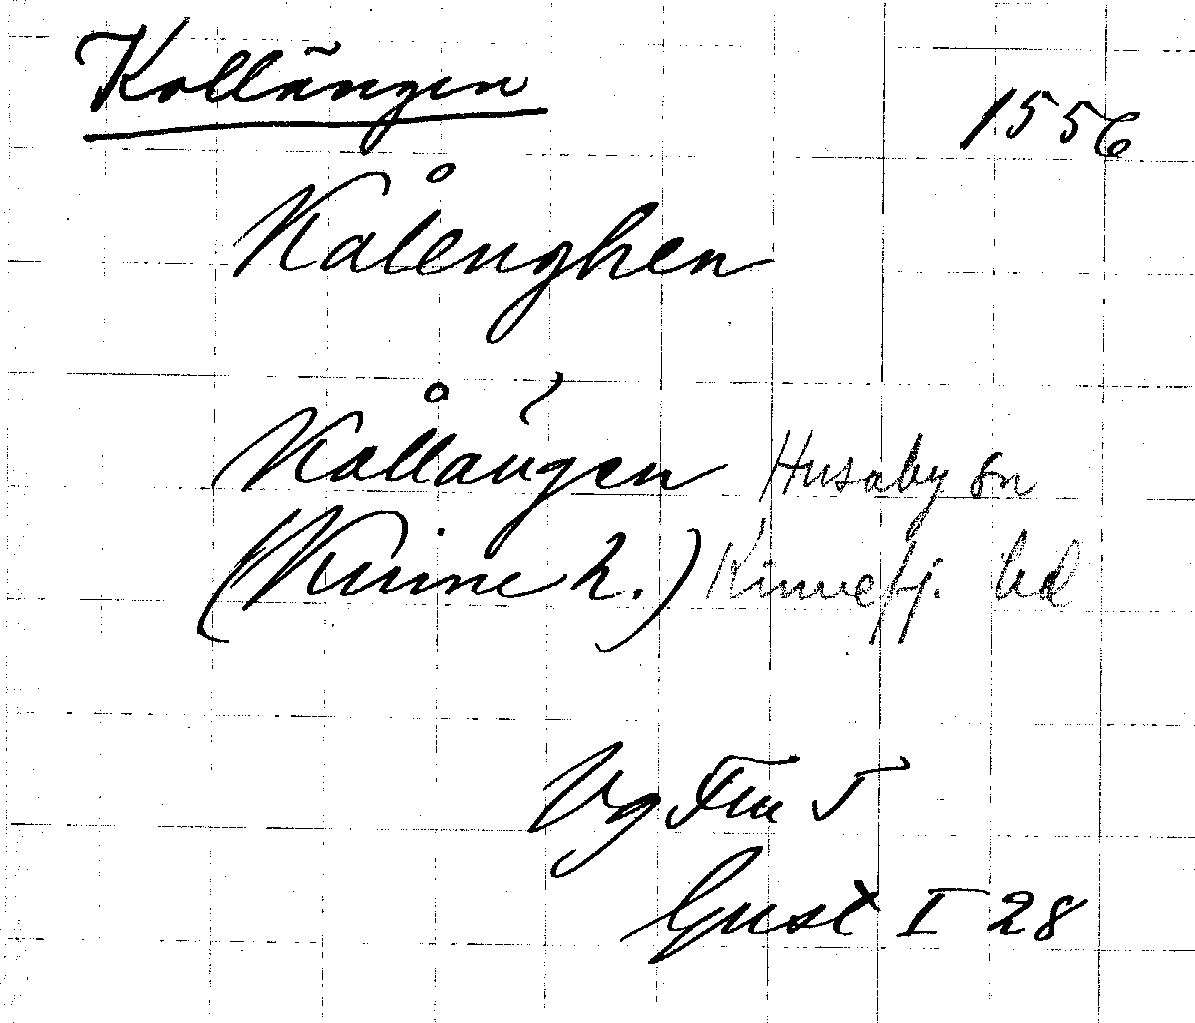 Kollängen
1556
Kålenghen
Kållängen Husaby sn
(Kinne h.) Kinnefj. hd
Vg Fru 5
Gust I 28